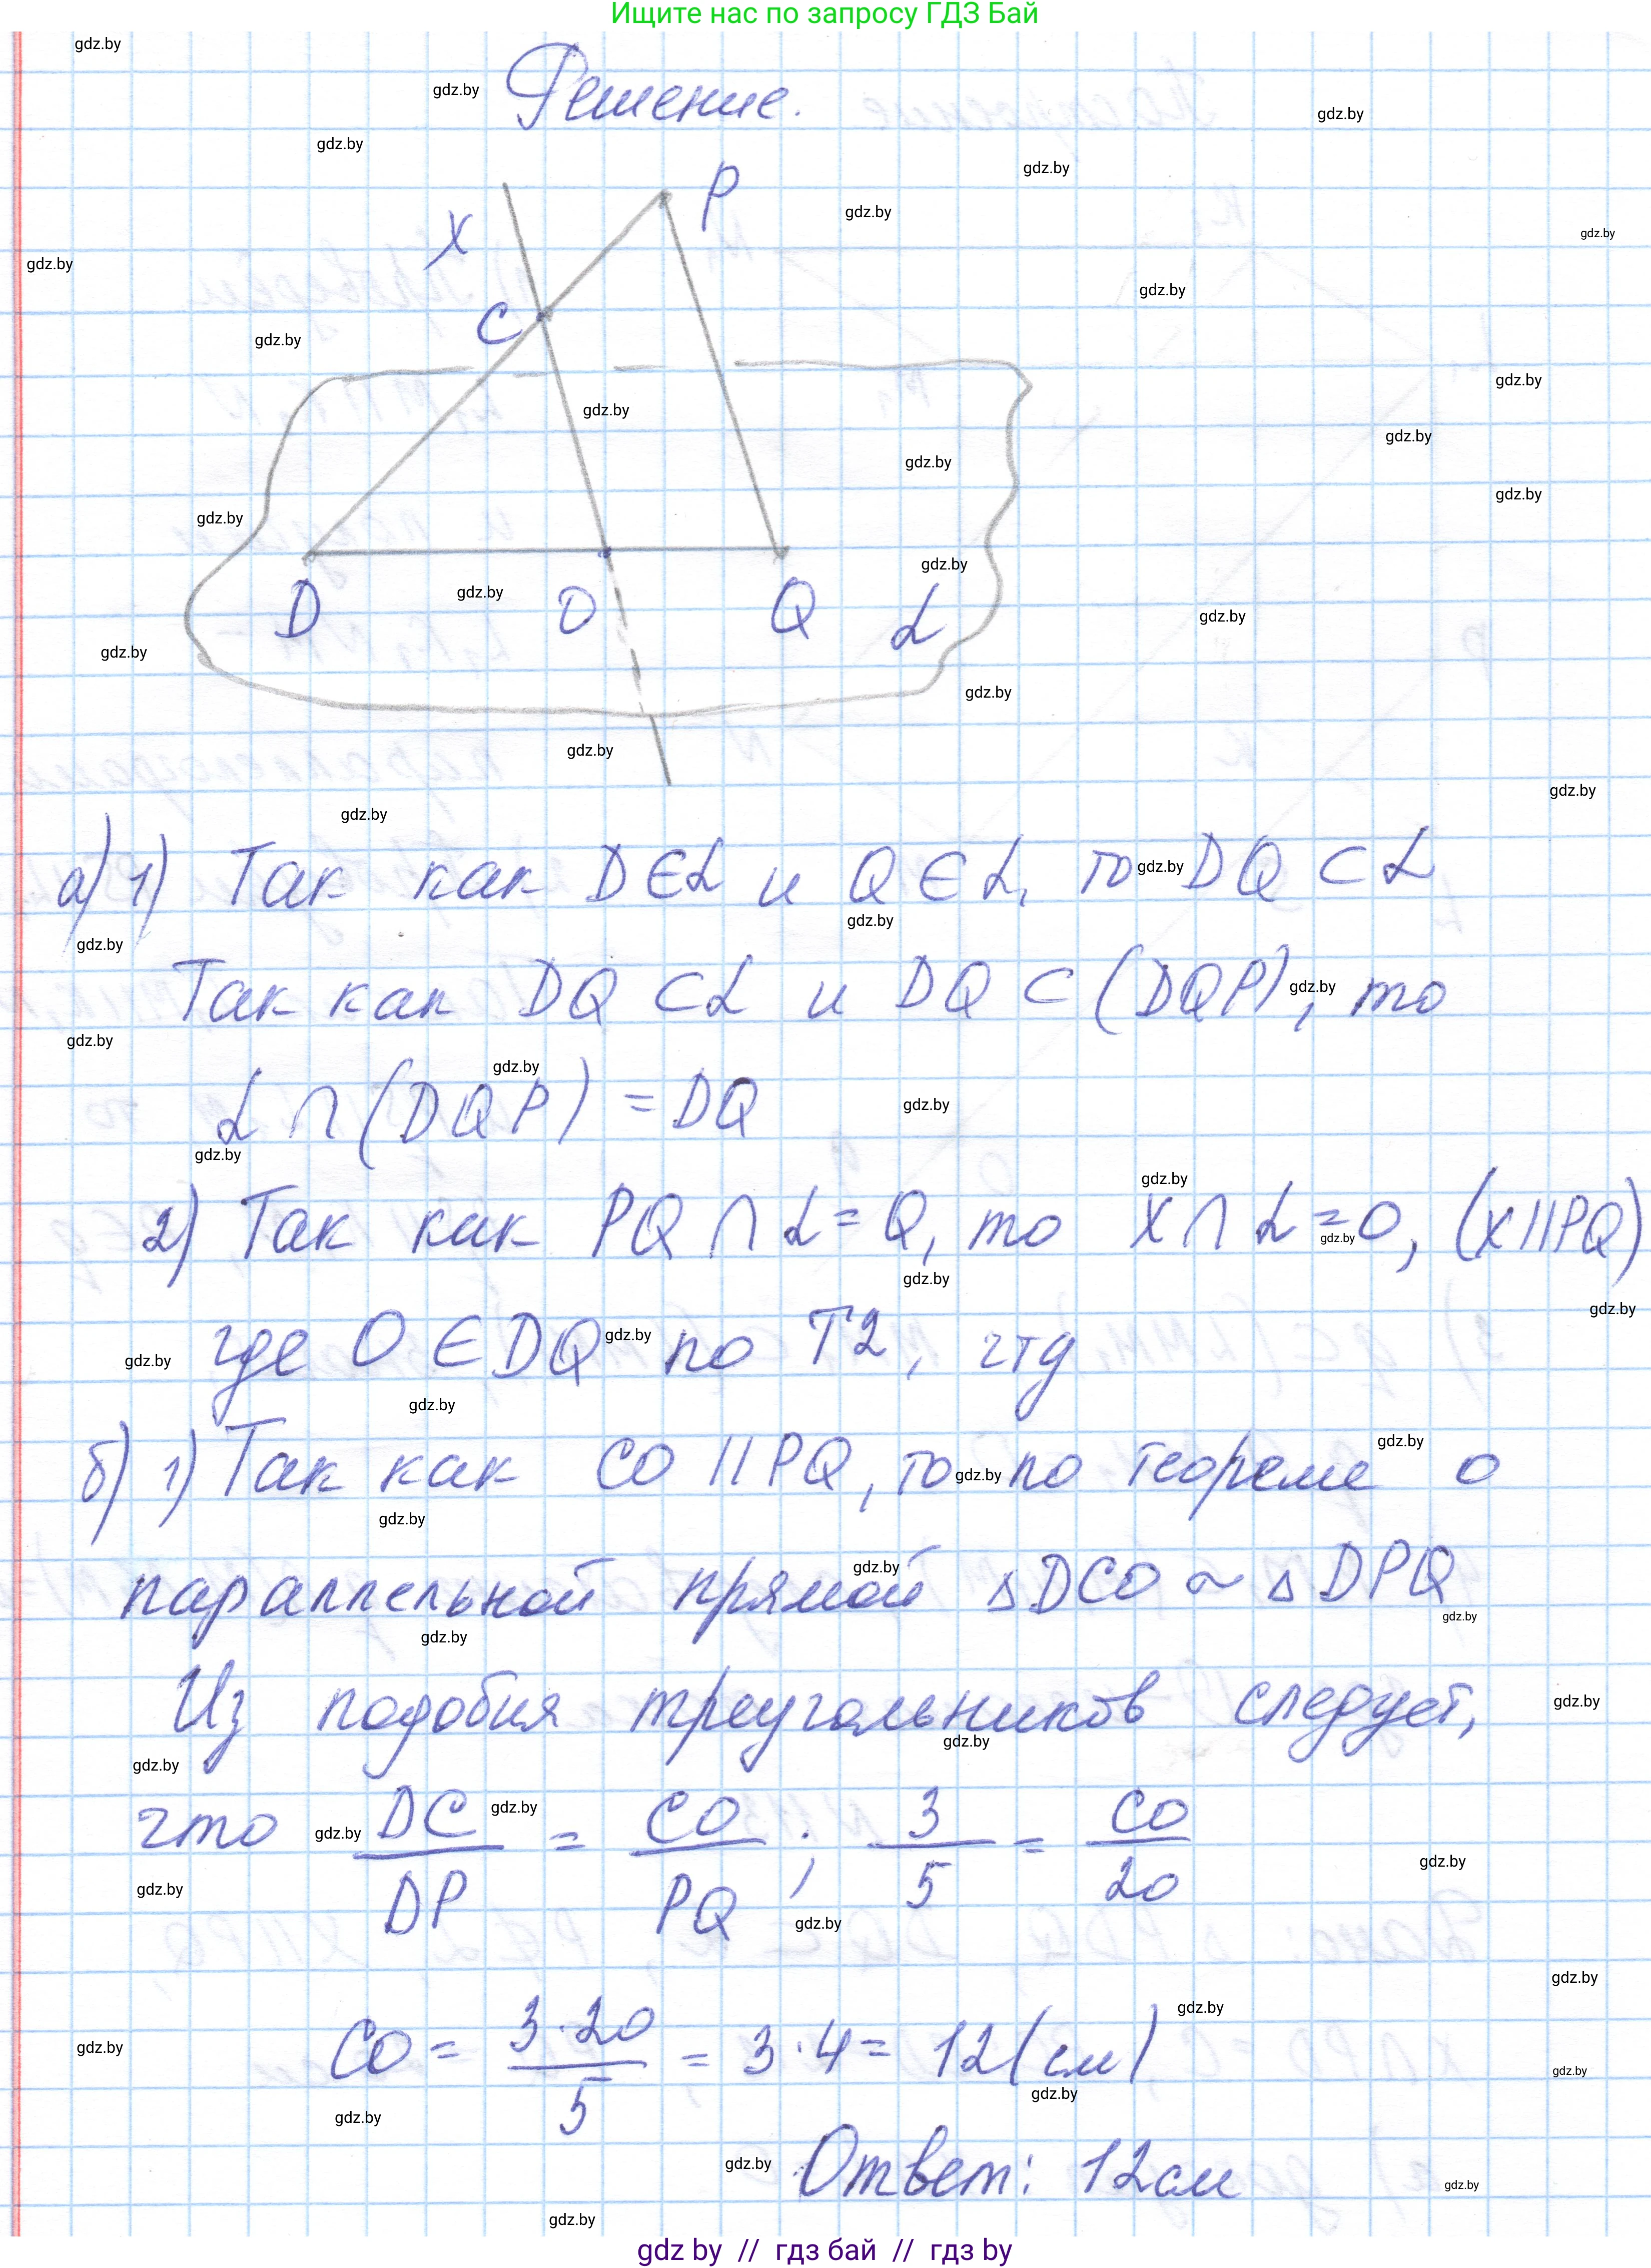 Ищите нас по запросу ГДЗ Бай
Решение.
P
x
C
D O Q α
а) 1) Так как D ∈ α и Q ∈ α, то DQ ⊂ α
Так как DQ ⊂ α и DQ ⊂ (DQP), то
α ∩ (DQP) = DQ
2) Так как PQ ∩ α = Q, то x ∩ α = O, (x || PQ)
где O ∈ DQ по Т2, чтд
б) 1) Так как CO || PQ, то по теореме о
параллельной прямой △DCO ~ △DPQ
Из подобия треугольников следует,
что DC/DP = CO/PQ ; 3/5 = CO/20
CO = 3·20/5 = 3·4 = 12 (см)
Ответ: 12см
gdz by // гдз бай // гдз by